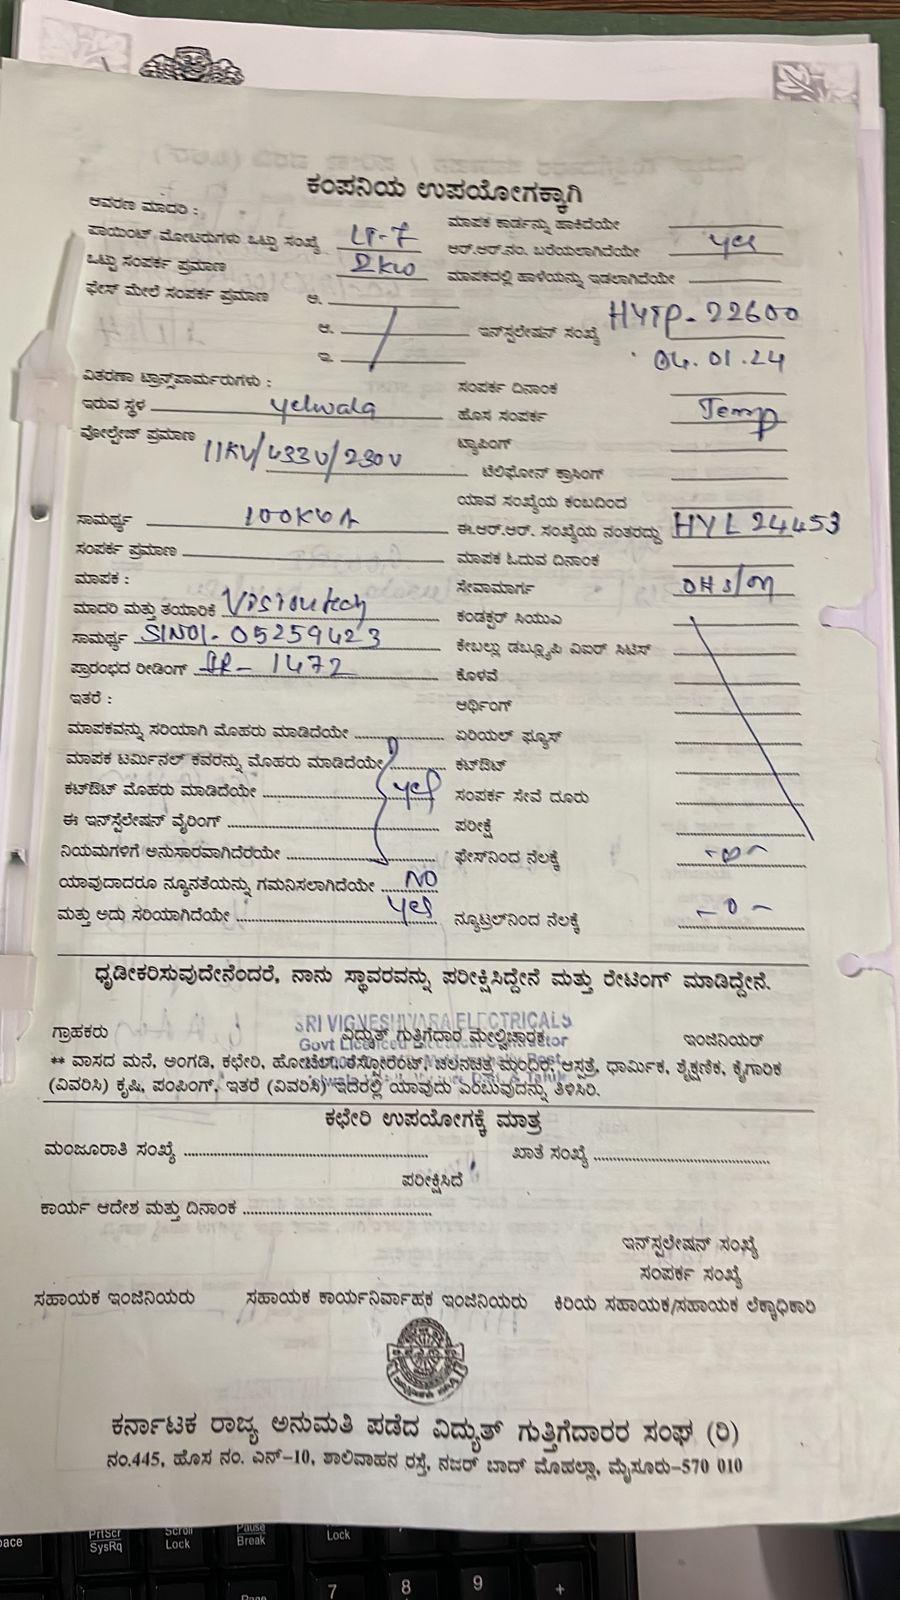 ಕಂಪನಿಯ ಉಪಯೋಗಕ್ಕಾಗಿ
ಆವರಣ ಮಾದರಿ :
ಮಾಪಕ ಕಾರ್ಡನ್ನು ಹಾಕಿದೆಯೇ
ಪಾಯಿಂಟ್ ಮೋಟರುಗಳು ಒಟ್ಟು ಸಂಖ್ಯೆ LT-7 ಆರ್.ಆರ್.ನಂ. ಬರೆಯಲಾಗಿದೆಯೇ yes
ಒಟ್ಟು ಸಂಪರ್ಕ ಪ್ರಮಾಣ 2kw ಮಾಪಕದಲ್ಲಿ ಹಾಳೆಯನ್ನು ಇಡಲಾಗಿದೆಯೇ
ಫೇಸ್ ಮೇಲೆ ಸಂಪರ್ಕ ಪ್ರಮಾಣ ಅ.
ಆ. ಇನ್‌ಸ್ಪಲೇಷನ್ ಸಂಖ್ಯೆ HYTP-22600
ಇ. 04.01.24
ವಿತರಣಾ ಟ್ರಾನ್ಸ್‌ಪಾರ್ಮರುಗಳು : ಸಂಪರ್ಕ ದಿನಾಂಕ
ಇರುವ ಸ್ಥಳ yelwala ಹೊಸ ಸಂಪರ್ಕ Temp
ವೋಲ್ಟೇಜ್ ಪ್ರಮಾಣ 11KV/433V/230V ಟ್ಯಾಪಿಂಗ್
ಟೆಲಿಫೋನ್ ಕ್ರಾಸಿಂಗ್
ಯಾವ ಸಂಖ್ಯೆಯ ಕಂಬದಿಂದ
ಸಾಮರ್ಥ್ಯ 100KVA ಈ.ಆರ್.ಆರ್. ಸಂಖ್ಯೆಯ ನಂತರದ್ದು HYL 24453
ಸಂಪರ್ಕ ಪ್ರಮಾಣ ಮಾಪಕ ಓದುವ ದಿನಾಂಕ
ಮಾಪಕ : ಸೇವಾಮಾರ್ಗ
ಮಾದರಿ ಮತ್ತು ತಯಾರಿಕೆ Visiontech ಕಂಡಕ್ಟರ್ ಸಿಯುಎ
ಸಾಮರ್ಥ್ಯ SlNo1-05259423 ಕೇಬಲ್ಲು ಡಬ್ಲ್ಯೂಪಿ ವಿಐರ್ ಸಿಟಿಸ್
ಪ್ರಾರಂಭದ ರೀಡಿಂಗ್ IR-1472 ಕೊಳವೆ
ಇತರೆ : ಆರ್ಥಿಂಗ್
ಮಾಪಕವನ್ನು ಸರಿಯಾಗಿ ಮೊಹರು ಮಾಡಿದೆಯೇ ಏರಿಯಲ್ ಫ್ಯೂಸ್
ಮಾಪಕ ಟರ್ಮಿನಲ್ ಕವರನ್ನು ಮೊಹರು ಮಾಡಿದೆಯೇ ಕಟ್‌ಔಟ್
ಕಟ್‌ಔಟ್ ಮೊಹರು ಮಾಡಿದೆಯೇ yes ಸಂಪರ್ಕ ಸೇವೆ ದೂರು
ಈ ಇನ್‌ಸ್ಪೆಲೇಷನ್ ವೈರಿಂಗ್ ಪರೀಕ್ಷೆ
ನಿಯಮಗಳಿಗೆ ಅನುಸಾರವಾಗಿದೆರೆಯೇ ಫೇಸ್‌ನಿಂದ ನೆಲಕ್ಕೆ -0-
ಯಾವುದಾದರೂ ನ್ಯೂನತೆಯನ್ನು ಗಮನಿಸಲಾಗಿದೆಯೇ NO
ಮತ್ತು ಅದು ಸರಿಯಾಗಿದೆಯೇ Yes ನ್ಯೂಟ್ರಲ್‌ನಿಂದ ನೆಲಕ್ಕೆ -0-
ಧೃಡೀಕರಿಸುವುದೇನೆಂದರೆ, ನಾನು ಸ್ಥಾವರವನ್ನು ಪರೀಕ್ಷಿಸಿದ್ದೇನೆ ಮತ್ತು ರೇಟಿಂಗ್ ಮಾಡಿದ್ದೇನೆ.
SRI VIGNESHWARA ELECTRICALS
ಗ್ರಾಹಕರು ವಿದ್ಯುತ್ ಗುತ್ತಿಗೆದಾರ ಮೇಲ್ವಿಚಾರಕ ಇಂಜಿನಿಯರ್
Govt Licenced Electrical
** ವಾಸದ ಮನೆ, ಅಂಗಡಿ, ಕಛೇರಿ, ಹೋಟೆಲ್, ರೆಸ್ಟೋರೆಂಟ್, ಚಲನಚಿತ್ರ ಮಂದಿರ, ಆಸ್ಪತ್ರೆ, ಧಾರ್ಮಿಕ, ಶೈಕ್ಷಣಿಕ, ಕೈಗಾರಿಕೆ
(ವಿವರಿಸಿ) ಕೃಷಿ, ಪಂಪಿಂಗ್, ಇತರೆ (ವಿವರಿಸಿ) ಇದರಲ್ಲಿ ಯಾವುದು ಎಂಬುವುದನ್ನು ತಿಳಿಸಿರಿ.
ಕಛೇರಿ ಉಪಯೋಗಕ್ಕೆ ಮಾತ್ರ
ಮಂಜೂರಾತಿ ಸಂಖ್ಯೆ ಖಾತೆ ಸಂಖ್ಯೆ
ಪರೀಕ್ಷಿಸಿದೆ
ಕಾರ್ಯ ಆದೇಶ ಮತ್ತು ದಿನಾಂಕ
ಇನ್‌ಸ್ಪಲೇಷನ್ ಸಂಖ್ಯೆ
ಸಂಪರ್ಕ ಸಂಖ್ಯೆ
ಸಹಾಯಕ ಇಂಜಿನಿಯರು ಸಹಾಯಕ ಕಾರ್ಯನಿರ್ವಾಹಕ ಇಂಜಿನಿಯರು ಕಿರಿಯ ಸಹಾಯಕ/ಸಹಾಯಕ ಲೆಕ್ಕಾಧಿಕಾರಿ
ಕರ್ನಾಟಕ ರಾಜ್ಯ ಅನುಮತಿ ಪಡೆದ ವಿದ್ಯುತ್ ಗುತ್ತಿಗೆದಾರರ ಸಂಘ (ರಿ)
ನಂ.445, ಹೊಸ ನಂ. ಎನ್-10, ಶಾಲಿವಾಹನ ರಸ್ತೆ, ನಜರ್ ಬಾದ್ ಮೊಹಲ್ಲಾ, ಮೈಸೂರು-570 010
PrtScr Scroll Pause
SysRq Lock Break Lock
7 8 9 +